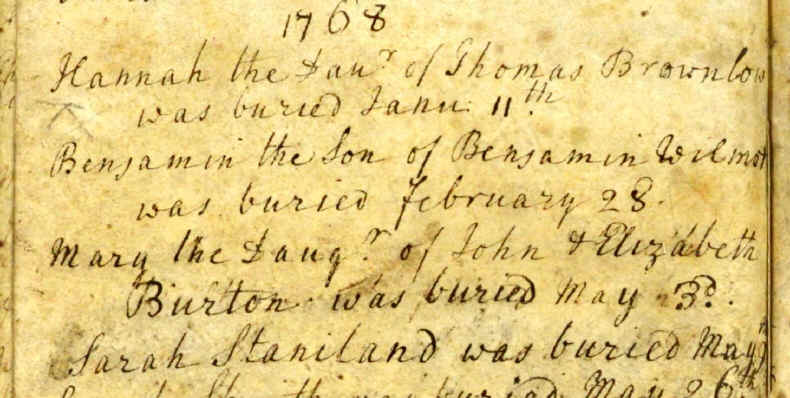 1768
Hannah the Daur of Thomas Brownlow
was buried Janu: 11th.
Benjamin the Son of Benjamin Wilmot
was buried February 28.
Mary the Daugr of John & Elizabeth
Burton was buried May 3d.
Sarah Staniland was buried May
was buried May 26th